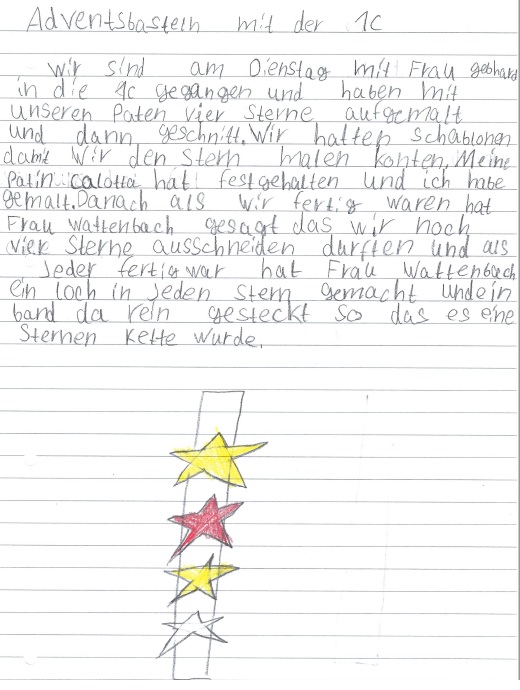 Adventsbasteln mit der 1c
Wir sind am Dienstag mit Frau gebhard
in die 1c gegangen und haben mit
unseren Paten vier Sterne aufgemalt
und dann geschnitt. Wir hatten Schablonen
damit wir den Stern malen konten. Meine
Patin calotta hat festgehalten und ich habe
gemalt. Danach als wir fertig waren hat
Frau Wattenbach gesagt das wir noch
vier Sterne ausschneiden durften und als
Jeder fertig war hat Frau Wattenbach
ein loch in Jeden Stern gemacht und ein
band da rein gesteckt so das es eine
Sternen Kette wurde.